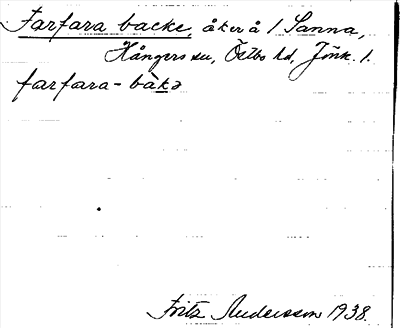 Farfara backe, åker å 1 Sanna,
Hångers sn, Östbo hd, Jönk. l.
farfara-bàkə
Fritz Andersson 1938.